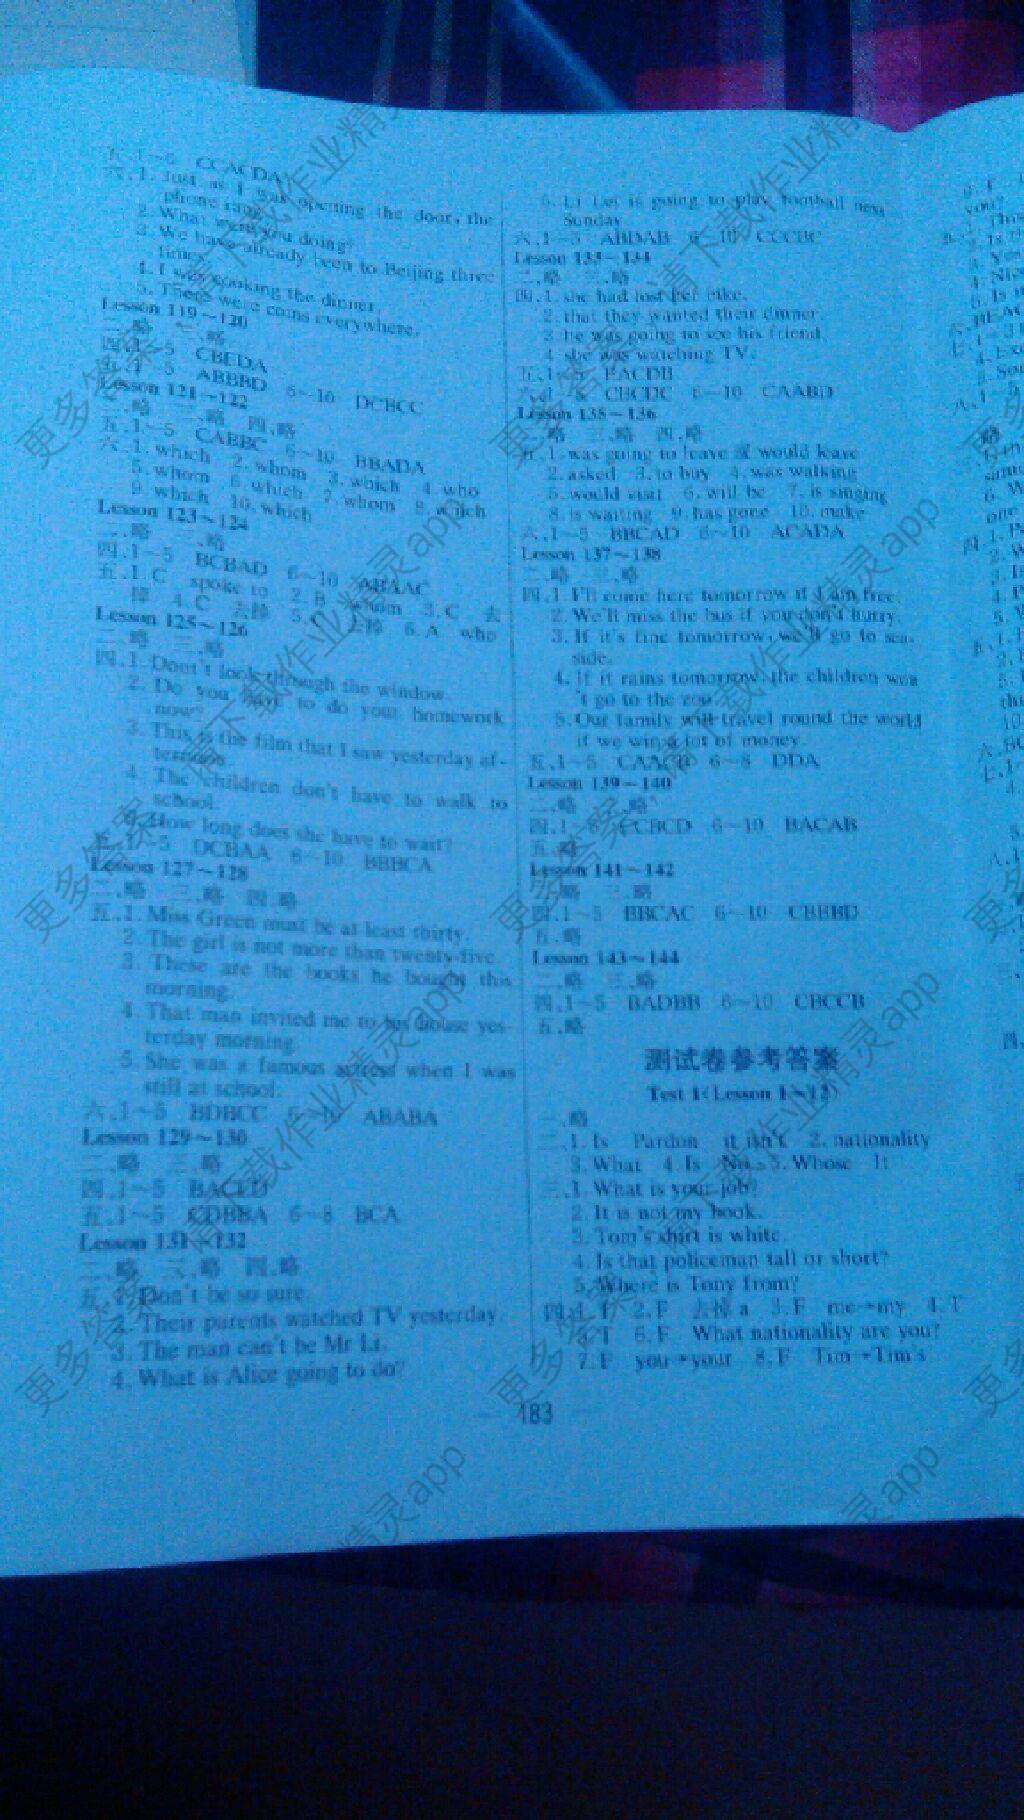 五.1~5 CCACDA
六.1. Just as I was opening the door, the
phone rang.
2. What were you doing?
3. We have already been to Beijing three
times.
4. I was cooking the dinner.
5. There were coins everywhere.
Lesson 119~120
二.略 三.略
四.1~5 CBEDA
五.1~5 ABBBD 6~10 DCBCC
Lesson 121~122
二.略 三.略 四.略
五.1~5 CABBC 6~10 BBADA
六.1. which 2. whom 3. which 4. who
5. whom 6. which 7. whom 8. which
9. which 10. which
Lesson 123~124
二.略 三.略
四.1~5 BCBAD 6~10 ABAAC
五.1. C spoke to 2. B whom 3. C 去
掉 4. C 去掉 5. C 去掉 6. A who
Lesson 125~126
二.略 三.略
四.1. Dont't look through the window.
2. Do you have to do your homework
now?
3. This is the film that I saw yesterday af-
ternoon.
4. The children don't have to walk to
school.
5. How long does she have to wait?
五.1~5 DCBAA 6~10 BBBCA
Lesson 127~128
二.略 三.略 四.略
五.1. Miss Green must be at least thirty.
2. The girl is not more than twenty-five.
3. These are the books he bought this
morning.
4. That man invited me to his house yes-
terday morning.
5. She was a famous actress when I was
still at school.
六.1~5 BDBCC 6~10 ABABA
Lesson 129~130
二.略 三.略
四.1~5
五.1~5 CDBBA 6~8 BCA
Lesson 131~132
二.略 三.略 四.略
五.1. Don't be so sure.
2. Their parents watched TV yesterday.
3. The man can't be Mr Li.
4. What is Alice going to do?
5. Li Lei is going to play football next
Sunday.
六.1~5 ABDAB 6~10 CCCBC
Lesson 133~134
二.略 三.略
四.1. she had lost her bike.
2. that they wanted their dinner.
3. he was going to see his friend.
4. she was watching TV.
五.1~5 EACDB
六.1~5 CBCDC 6~10 CAABD
Lesson 135~136
二.略 三.略 四.略
五.1. was going to leave 或 would leave
2. asked 3. to buy 4. was walking
5. would visit 6. will be 7. is singing
8. is waiting 9. has gone 10. make
六.1~5 BBCAD 6~10 ACADA
Lesson 137~138
二.略 三.略
四.1. I'll come here tomorrow if I am free.
2. We'll miss the bus if you don't hurry.
3. If it's fine tomorrow, we'll go to sea-
side.
4. If it rains tomorrow, the children won
't go to the zoo.
5. Our family will travel round the world
if we win a lot of money.
五.1~5 CAACB 6~8 DDA
Lesson 139~140
二.略 三.略
四.1~5 CCBCD 6~10 BACAB
五.略
Lesson 141~142
二.略 三.略
四.1~5 BBCAC 6~10 CBBBD
五.略
Lesson 143~144
二.略 三.略
四.1~5 BADBB 6~10 CBCCB
五.略
测试卷参考答案
Test 1(Lesson 1~12)
一.略
二.1. Is Pardon it isn't 2. nationality
3. What 4. Is No 5. Whose It
三.1. What is your job?
2. It is not my book.
3. Tom's shirt is white.
4. Is that policeman tall or short?
5. Where is Tony from?
四.1. T 2. F 去掉 a 3. F me→my 4. T
5. T 6. F What nationality are you?
7. F you→your 8. F Tim→Tim's
— 183 —
更多答案,请下载作业精灵app